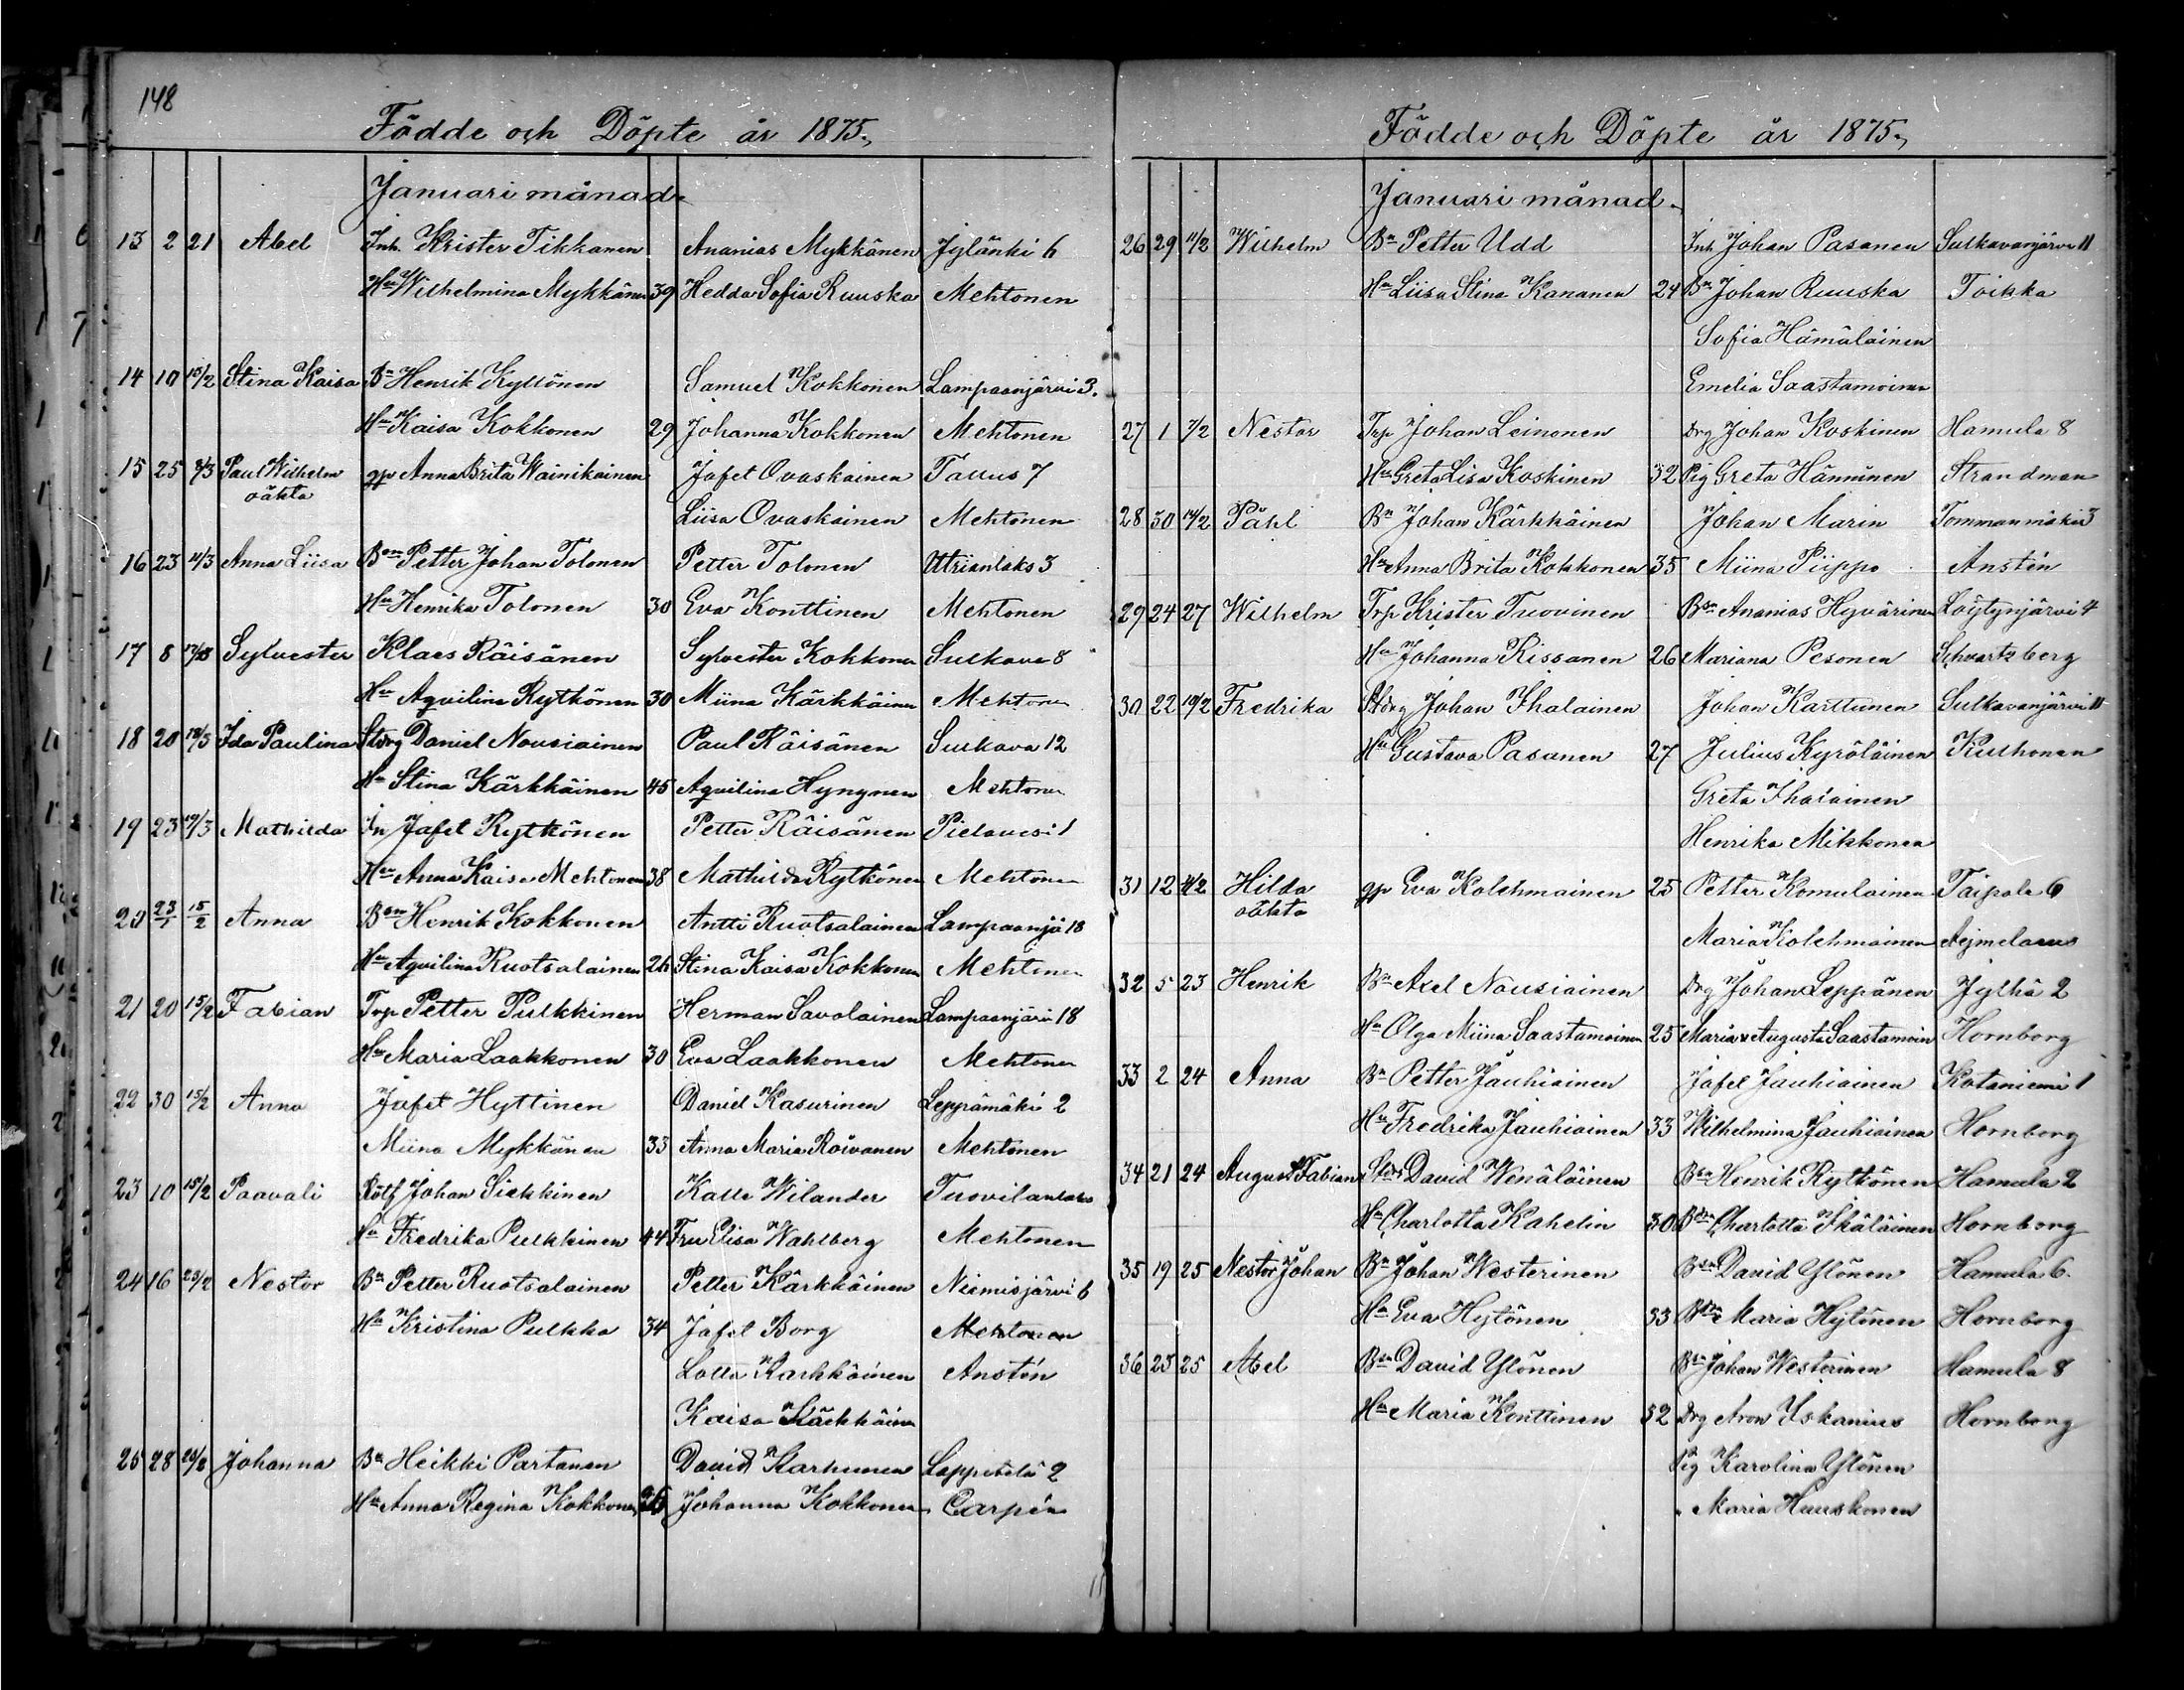 148
Födde och Döpte år 1875.
Januari månad.
13 2 21 Abel Inh. Krister Tikkanen Ananias Mykkänen Jylänki 6
Hu Wilhelmina Mykkänen 39 Hedda Sofia Ruuska Mehtonen
14 10 15/2 Stina Kaisa Bn Henrik Kyllönen Samuel Kokkonen Lampaanjärvi 3.
Hu Kaisa Kokkonen 29 Johanna Kokkonen Mehtonen
15 25 8/3 Paul Wilhelm gp Anna Brita Wainikainen Jafet Ovaskainen Tallus 7
oäkta
Liisa Ovaskainen Mehtonen
16 23 11/3 Anna Liisa Bon Petter Johan Tolonen Petter Tolonen Utrianlaks 3
Hu Henrika Tolonen 30 Eva Konttinen Mehtonen
17 8 Sylvester Klaes Räisänen Sylvester Kokkonen Sulkava 8
Hu Aqvilina Rytkönen 30 Miina Kärkkäinen Mehtonen
18 20 18/3 Ida Paulina Stdrg Daniel Nousiainen Paul Räisänen Sulkava 12
Hu Stina Kärkkäinen 45 Aqvilina Hyngnen Mehtonen
19 23 19/3 Mathilda In Jafet Rytkönen Petter Räisänen Pielavesi 1
Hu Anna Kaisa Mehtonen 38 Mathilda Rytkönen Mehtonen
20 23/1 15/2 Anna Bon Henrik Kokkonen Antti Ruotsalainen Lampaanjä 18
Hu Aqvilina Ruotsalainen 26 Stina Kaisa Kokkonen Mehtonen
21 20 15/2 Fabian Trp Petter Pulkkinen Herman Savolainen Lampaanjärvi 18
Hu Maria Laakkonen 30 Eva Laakkonen Mehtonen
22 30 15/2 Anna Jafet Hyttinen Daniel Kasurinen Leppämäki 2
Miina Mykkänen 33 Anna Maria Roivanen Mehtonen
23 10 15/2 Paavali Johan Siekkinen Kalle Wilander Tuovilanlaks
Hu Fredrika Pulkkinen 44 Fru Elisa Wahlberg Mehtonen
24 16 23/2 Nestor Bn Petter Ruotsalainen Petter Kärkkäinen Niemisjärvi 6
Hu Kristina Pulkka 34 Jafet Borg Mehtonen
Lotta Karhkäinen Anstén
Kaisa Kärkkäinen
25 28 Johanna Bn Heikki Partanen David Karhunen Lappetelä 2
Hu Anna Regina Kokkonen 36 Johanna Kokkonen Carpén
Födde och Döpte år 1875.
Januari månad.
26 29 11/2 Wilhelm Bn Petter Udd Inh Johan Pasanen Sulkavanjärvi 11
Hu Liisa Stina Kananen 24 Bn Johan Ruuska Toikka
Sofia Hämäläinen
Emelia Saastamoinen
27 1 7/2 Nestor Trp Johan Leinonen Drg Johan Koskinen Hamula 8
Hu Greta Lisa Koskinen 32 Pig Greta Hänninen Strandman
28 30 14/2 Påhl Bn Johan Kärkkäinen Johan Marin Tommanmäki 3
Hu Anna Brita Kokkonen 35 Miina Piippo Anstén
29 24 27 Wilhelm Trp Krister Tuovinen Bsn Ananias Hyvärinen Löytynjärvi 4
Hu Johanna Rissanen 26 Mariana Pesonen Schvartzberg
30 22 19/2 Fredrika Stdrg Johan Ihalainen Johan Karttunen Sulkavanjärvi 11
Hu Gustava Pasanen 27 Julius Kyröläinen Kuthonen
Greta Ihalainen
Henrika Mikkonen
31 12 11/2 Hilda gp Eva Kolehmainen 25 Petter Komulainen Taipale 6
oäkta
Maria Kolehmainen Aejmelaeus
32 5 23 Henrik Bn Axel Nousiainen Drg Johan Leppänen Jylhä 2
Hu Olga Miina Saastamoinen 25 Maria Augusta Saastamoin Hornborg
33 2 24 Anna Bn Petter Jauhiainen Jafet Jauhiainen Kotaniemi 1
Hu Fredrika Jauhiainen 33 Wilhelmina Jauhiainen Hornborg
34 21 24 August Fabian David Wenäläinen Bsn Henrik Rytkönen Hamula 2
Hu Charlotta Kahelin 30 Charlotta Ikäläinen Hornborg
35 19 25 Nestor Johan Bn Johan Westerinen Bsn David Ylönen Hamula 6.
Hu Eva Hytönen 33 Maria Hytönen Hornborg
36 23 25 Abel Bsn David Ylönen Bsn Johan Westerinen Hamula 8
Hu Maria Konttinen 32 Drg Aron Iskanius Hornborg
Pig Karolina Ylönen
" Maria Hauskonen